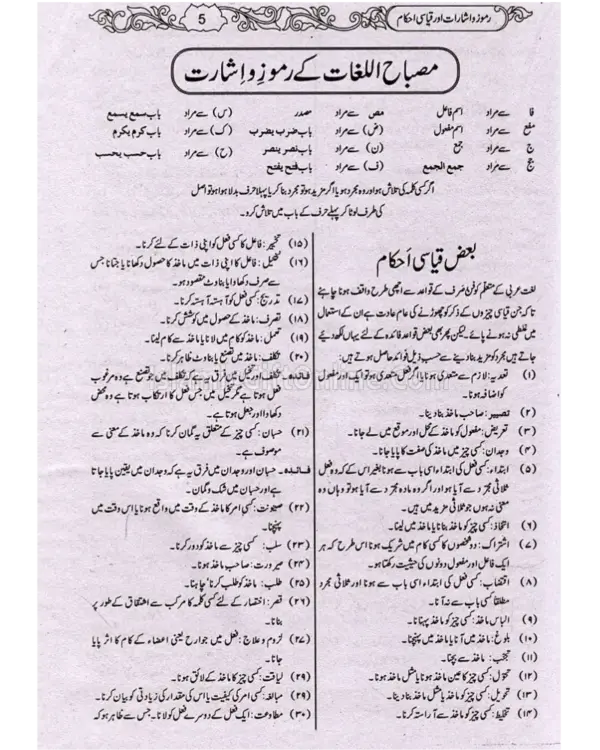 رموز و اشارات اور قیاسی احکام
5
مصباح اللغات کے رموز و اشارت
فا سے مراد اسم فاعل مص سے مراد صدر (س) سے مراد باب سمع یسمع
مفع سے مراد اسم مفعول (ض) سے مراد باب ضرب یضرب (ک) سے مراد باب کرم یکرم
ج سے مراد جمع (ن) سے مراد باب نصر ینصر (ح) سے مراد باب حسب یحسب
جج سے مراد جمع الجمع (ف) سے مراد باب فتح یفتح
اگر کسی کلمہ کی تلاش ہو اور وہ مجرد ہو یا اگر مزید ہو تو مجرد بنا کر یا پہلا حرف بدلا ہوا ہو تو اصل
کی طرف لوٹا کر پہلے حرف کے باب میں تلاش کرو۔
بعض قیاسی أحکام
لغت عربی کے متعلم کو فن صرف کے قواعد سے اچھی طرح واقف ہونا چاہئے
تا کہ جن قیاسی چیزوں کے ذکر کو چھوڑنے کی عام عادت ہے ان کے استعمال
میں غلطی نہ ہونے پائے۔ لیکن پھر بھی بعض قواعد فائدہ کے لئے یہاں لکھ دیئے
جاتے ہیں مجرد کو مزید بنا دینے سے حسب ذیل فوائد حاصل ہوتے ہیں:
(۱) تعدیہ: لازم سے متعدی ہونا یا اگر فعل متعدی ہو تو ایک اور مفعول
کا اضافہ ہونا۔
(۲) تصییر: صاحب ماخذ بنا دینا۔
(۳) تعریض: مفعول کو ماخذ کے محل اور موقع میں لے جانا۔
(۴) وجدان: کسی چیز میں ماخذ کی صفت کا پایا جانا۔
(۵) ابتداء: کسی فعل کی ابتداء اسی باب سے ہونا بغیر اس کے کہ وہ فعل
ثلاثی مجرد سے آیا ہو اور اگر وہ مادہ مجرد سے آیا ہو تو وہاں وہ
معنی نہ ہوں جو ثلاثی مزید میں ہیں۔
(۶) اتخاذ: کسی چیز کو ماخذ بنانا یا ماخذ میں لینا۔
(۷) اشتراک: دو شخصوں کا کسی کام میں شریک ہونا اس طرح کہ ہر
ایک فاعل اور مفعول دونوں کی حیثیت رکھتا ہو۔
(۸) اقتضاب: کسی فعل کی ابتداء اسی باب سے ہونا اور ثلاثی مجرد
مطلقا کسی باب سے نہ آنا۔
(۹) الباس ماخذ: کسی چیز کو ماخذ پہنانا۔
(۱۰) بلوغ: ماخذ میں آنا یا ماخذ میں پہنچنا۔
(۱۱) تجنب: ماخذ سے بچنا۔
(۱۲) تحول: کسی چیز کا عین ماخذ ہونا یا مثل ماخذ ہونا۔
(۱۳) تحویل: کسی چیز کو ماخذ یا مثل ماخذ بنا دینا۔
(۱۴) تخلیط: کسی چیز کو ماخذ سے آراستہ کرنا۔
(۱۵) تخییر: فاعل کا کسی فعل کو اپنی ذات کے لئے کرنا۔
(۱۶) تخییل: فاعل کا اپنی ذات میں ماخذ کا حصول دکھانا یا جتانا جس
سے صرف دکھاوا یا بناوٹ مقصود ہو۔
(۱۷) تدریج: کسی فعل کو آہستہ آہستہ کرنا۔
(۱۸) تصرف: ماخذ کے حصول میں کوشش کرنا۔
(۱۹) تعمل: ماخذ کو کام میں لانا یا ماخذ سے کام لینا۔
(۲۰) تکلف: ماخذ میں تصنع یا بناوٹ ظاہر کرنا۔
فائدہ۔ تکلف اور تخییل میں فرق یہ ہے کہ تکلف میں جو تصنع ہے وہ مرغوب
فعل ہوتا ہے مگر تخییل میں جس فعل کا ارتکاب ہوتا ہے وہ محض
دکھاوا اور جعل ہوتا ہے۔
(۲۱) حسبان: کسی چیز کے متعلق یہ گمان کرنا کہ وہ ماخذ کے معنی سے
موصوف ہے۔
فائدہ۔ حسبان اور وجدان میں فرق یہ ہے کہ وجدان میں یقین پایا جاتا
ہے اور حسبان میں شک و گمان۔
(۲۲) صیحونت: کسی امر کا ماخذ کے وقت میں واقع ہونا یا اس وقت میں
پہنچنا۔
(۲۳) سلب: کسی چیز سے ماخذ کو دور کرنا۔
(۲۴) صیرورت: صاحب ماخذ ہونا۔
(۲۵) طلب: ماخذ کو طلب کرنا' چاہنا۔
(۲۶) قصر: اختصار کے لئے کسی کلمہ کا مرکب سے اشتقاق کے طور پر
بنانا۔
(۲۷) لزوم و علاج: فعل میں جوارح یعنی اعضاء کے کام کا اثر پایا
جانا۔
(۲۹) لیاقت: کسی چیز کا ماخذ کے لائق ہونا۔
(۲۹) مبالغہ: کسی امر کی کیفیت یا اس کی مقدار کی زیادتی کو بیان کرنا۔
(۳۰) مطاوعت: ایک فعل کے دوسرے فعل کو لانا۔ جس سے ظاہر ہو کہ